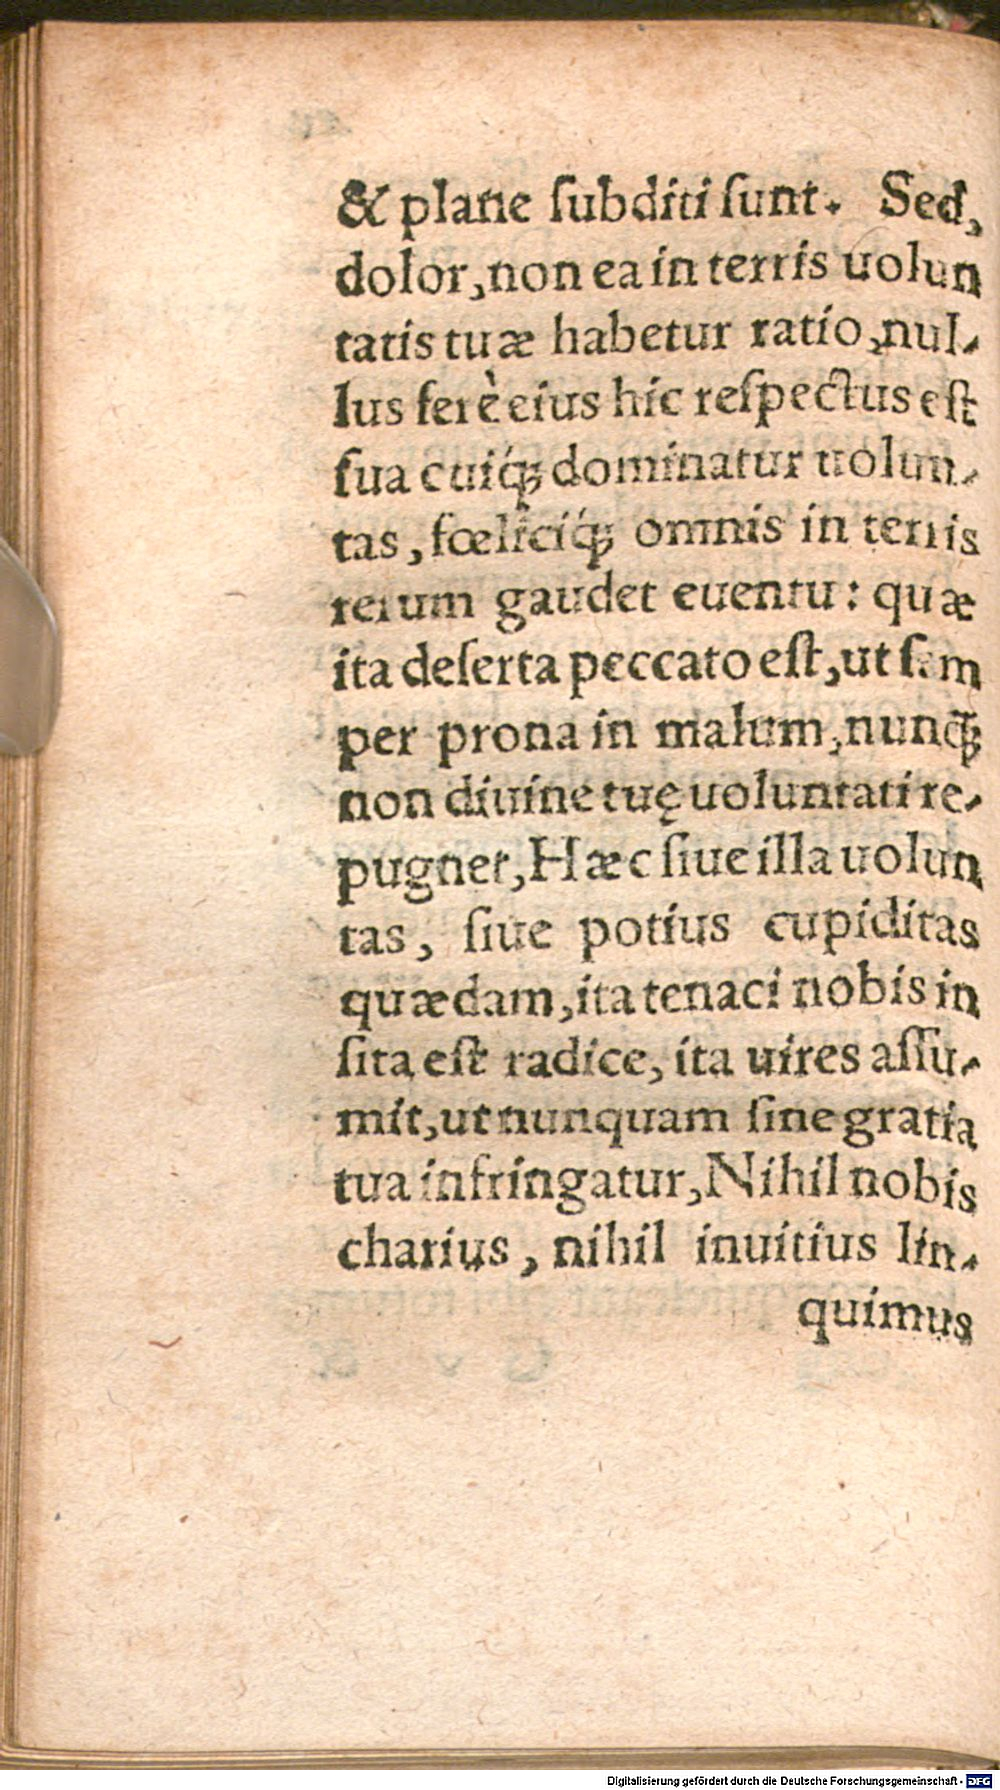 & plane ſubditi ſunt. Sed,
dolor, non ea in terris uolun
tatis tuæ habetur ratio, nul-
lus ferè eius hic reſpectus eſt
ſua cuiq́ꝫ dominatur uolun-
tas, fœliciq́ꝫ omnis in terris
rerum gaudet euentu: quæ
ita deſerta peccato eſt, ut ſem
per prona in malum, nunq̃ꝫ
non diuine tuę uoluntati re-
pugnet, Hæc ſiue illa uolun
tas, ſiue potius cupiditas
quædam, ita tenaci nobis in
ſita eſt radice, ita uires aſſu-
mit, ut nunquam ſine gratia
tua infringatur, Nihil nobis
charius, nihil inuitius lin-
quimus
Digitalisierung gefördert durch die Deutsche Forschungsgemeinschaft - DFG